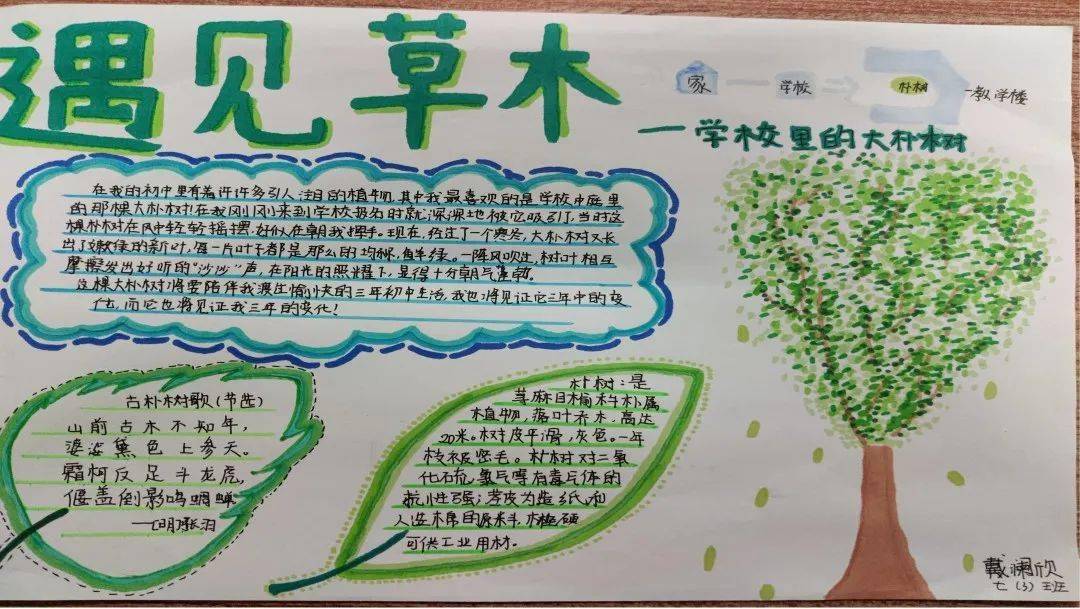 遇见草木
家
学校
朴树
教学楼
一学校里的大朴树
在我的初中里有着许许多多引人注目的植物,其中我最喜欢的是学校中庭里
的那棵大朴树!在我刚刚来到学校报名时就深深地被它吸引了,当时这
棵朴树在风中轻轻摇摆,好似在朝我挥手。现在,经过了一个寒冬,大朴树又长
出了嫩绿的新叶,每一片叶子都是那么的均称,鲜绿。一阵风吹过,树叶相互
摩擦发出好听的“沙沙”声,在阳光的照耀下,显得十分朝气蓬勃。
这棵大朴树将要陪伴我渡过愉快的三年初中生活,我也将见证它三年中的变
化,而它也将见证我三年的变化!
古朴树歌(节选)
山前古木不知年,
婆娑黛色上参天。
霜柯反足斗龙虎,
偃盖倒影鸣蜩蝉
—[明]张羽
朴树:是
荨麻目榆科朴属
植物,落叶乔木,高达
20米。树皮平滑,灰色。一年
枝被密毛。朴树对二氧
化硫,氯气等有毒气体的
抗性强;茎皮为造纸和
人造棉的原料,
可供工业用材。
戴澜欣
七(3)班